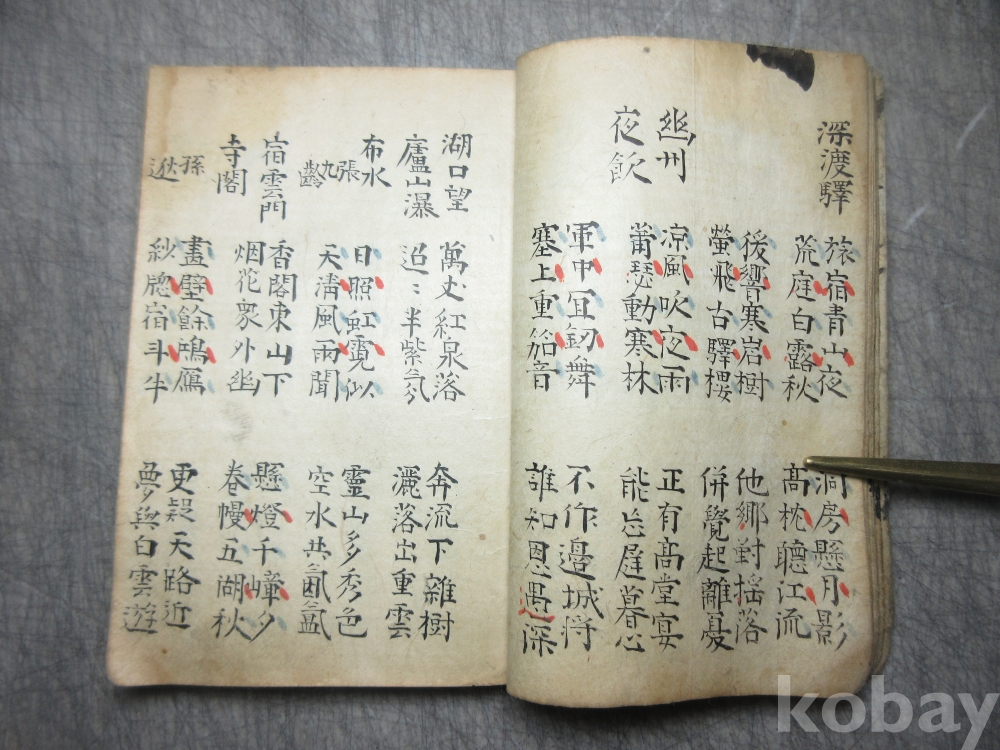 深渡驛
旅宿青山夜
荒庭白露秋
洞房懸月影
高枕聽江流
猿響寒岩樹
螢飛古驛樓
他鄉對搖落
併覺起離憂
幽州
夜飲
凉風吹夜雨
蕭瑟動寒林
正有高堂宴
能忘庭暮心
軍中宜劒舞
塞上重笳音
不作邊城將
誰知恩遇深
湖口望
廬山瀑
布水
張九齡
萬丈紅泉落
迢〻半紫氛
奔流下雜樹
灑落出重雲
日照虹霓似
天清風雨聞
靈山多秀色
空水共氤氳
宿雲門
寺閣
孫逖
香閣東山下
烟花衆外幽
懸燈千嶂夕
卷幔五湖秋
畫壁餘鴻鴈
紗牕宿斗牛
更疑天路近
夢與白雲遊
kobay